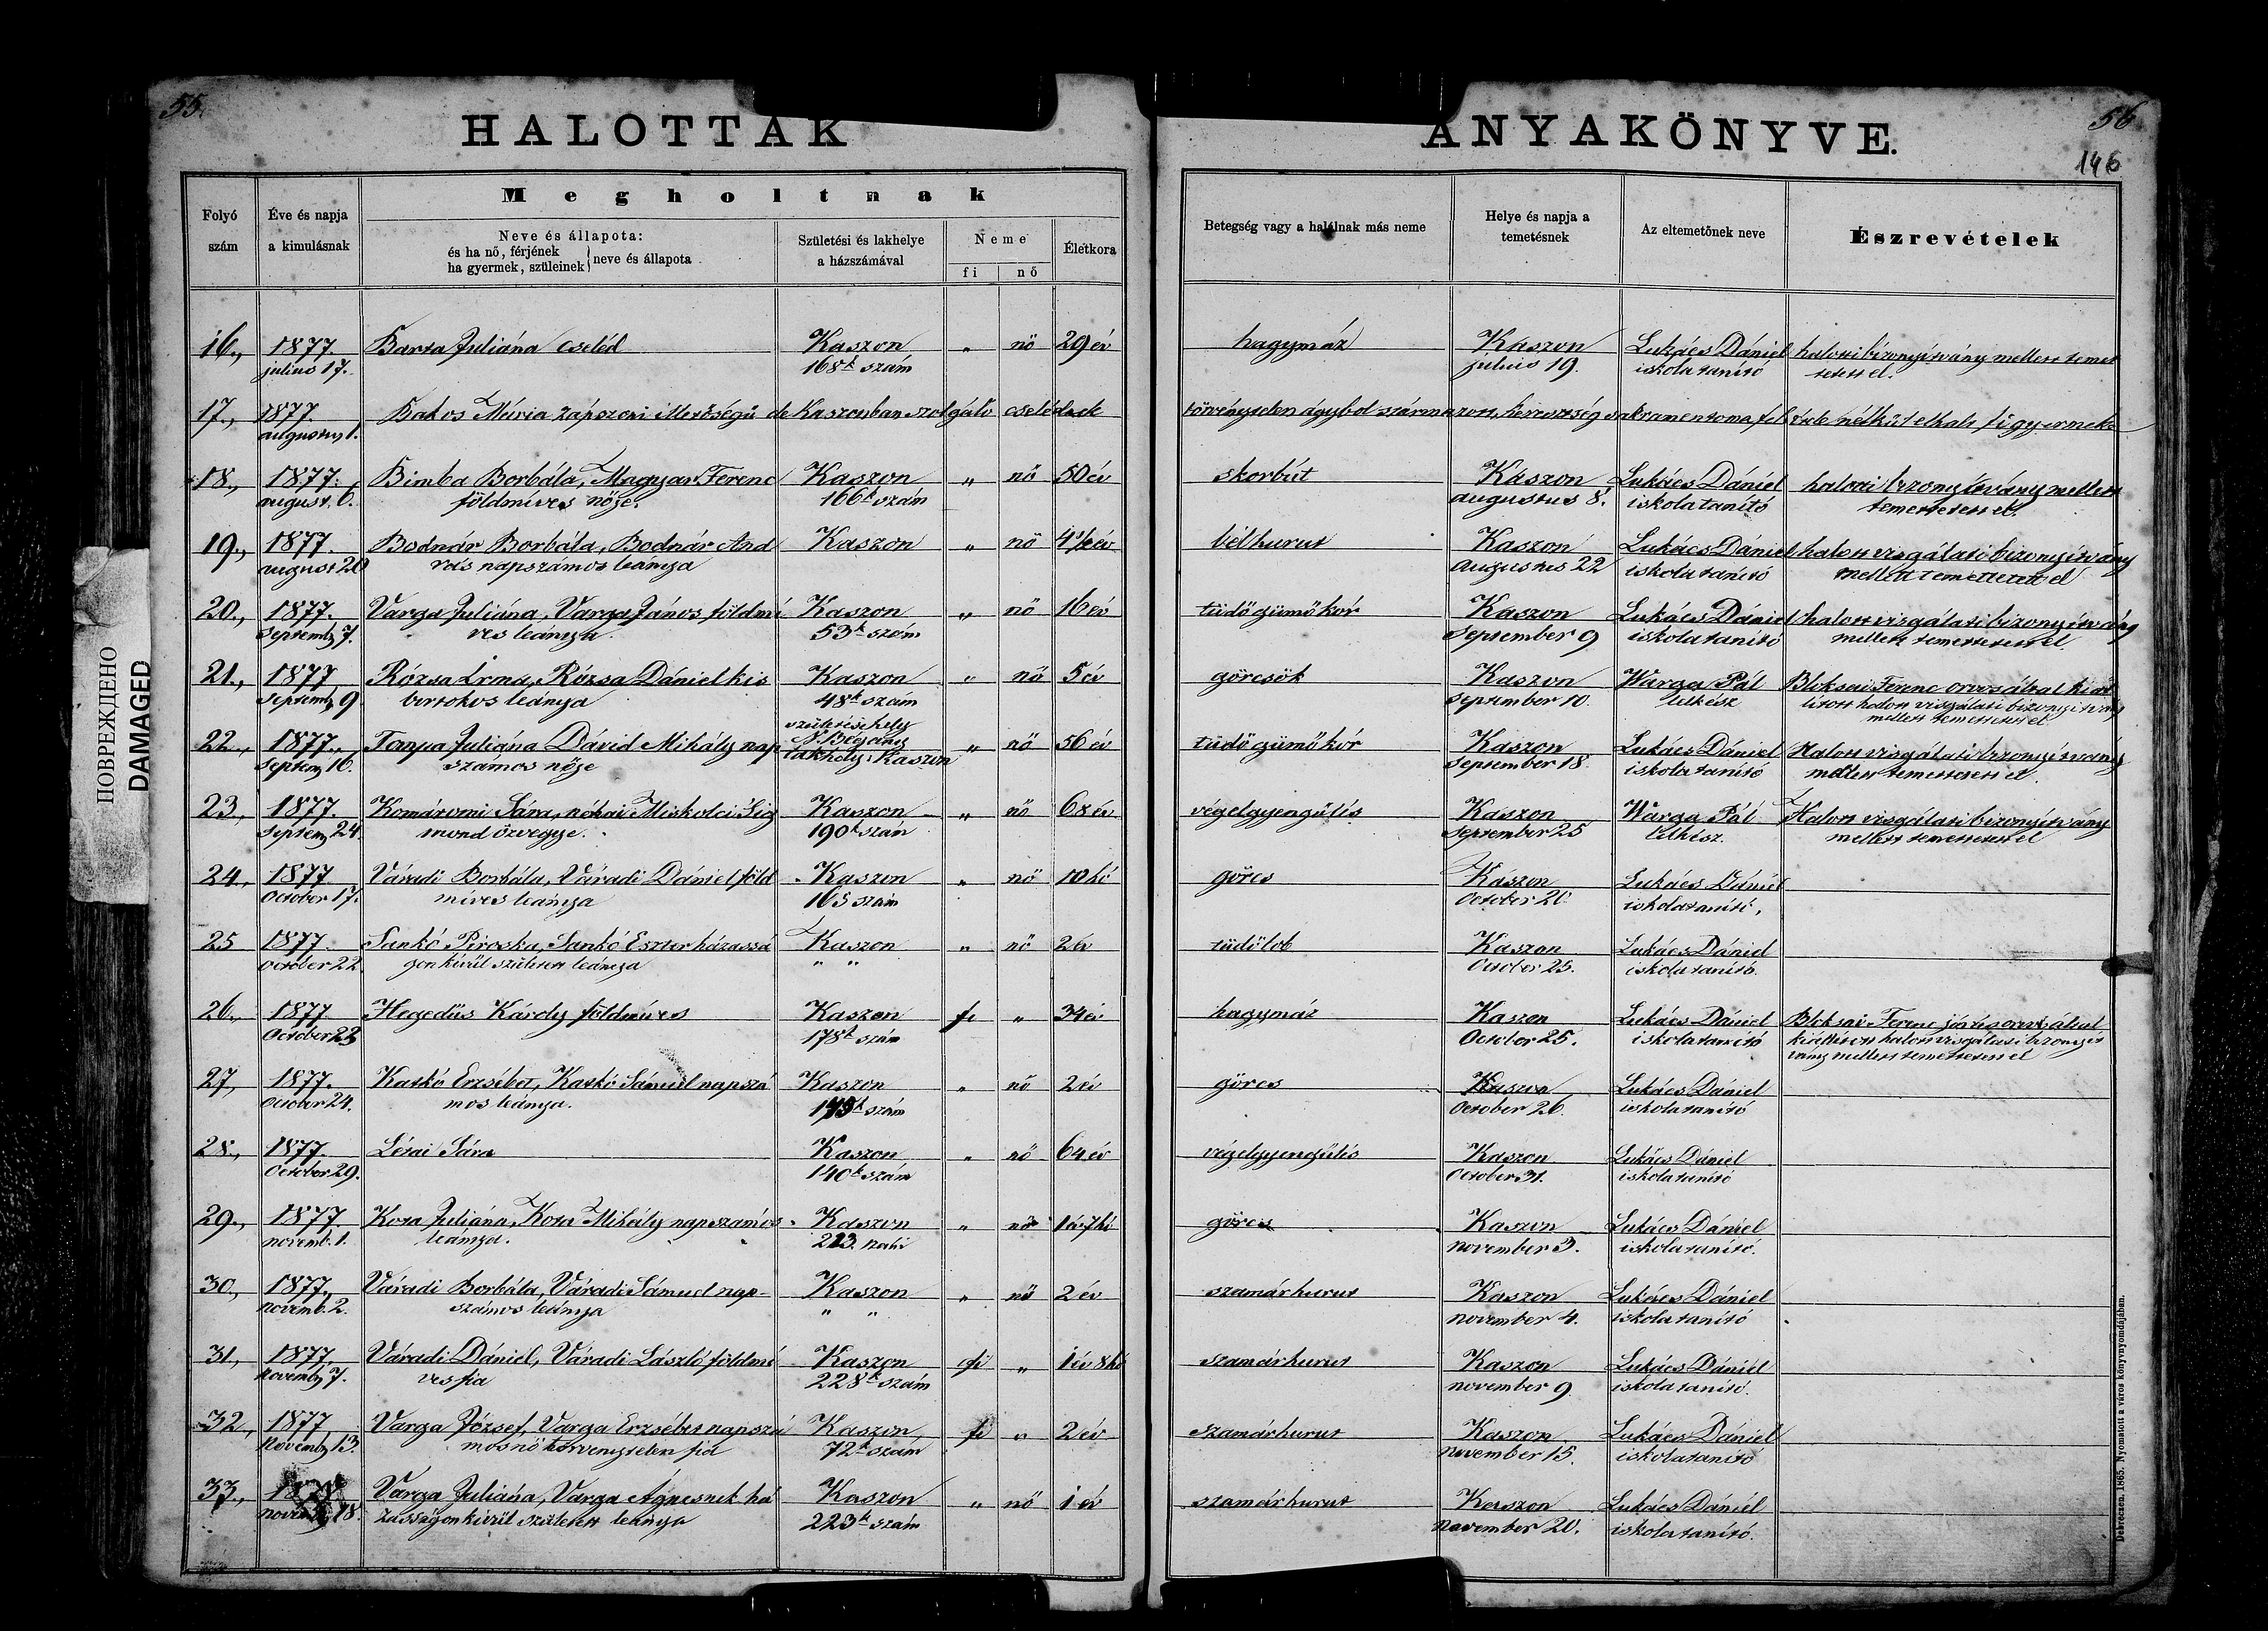 55.
HALOTTAK
ANYAKÖNYVE.
56
146
ПОВРЕЖДЕНО
DAMAGED
Folyó szám
Éve és napja a kimulásnak
Megholtnak
Neve és állapota:
és ha nő, férjének
ha gyermek, szüleinek} neve és állapota
Születési és lakhelye a házszámával
Neme
fi nő
Életkora
Betegség vagy a halálnak más neme
Helye és napja a temetésnek
Az eltemetőnek neve
Észrevételek
16., 1877. Barta Juliána cseléd Kaszon „ nő 29 év hagymáz Kaszon Lukács Dániel halotti bizonyitvány mellett temet
julius 17. 168k szám julius 19. iskolatanító tetett el.
17., 1877. Bakos Mária zápszoni illetőségű de Kaszonban szolgáló cselédnek törvénytelen ágyból származott, keresztség sakramentoma fel tele nélkül elhalt fi gyermeke
augustus 1.
18., 1877. Bimba Borbála, Magyar Ferenc Kaszon „ nő 50 év skorbút Kaszon Lukács Dániel halotti bizonyitvány mellett
august. 6. földmíves nője. 166k szám augustus 8. iskolatanító temettetett el.
19., 1877. Bodnár Borbála, Bodnár And Kaszon „ nő 4½ év bélhurut Kaszon Lukács Dániel halott visgálati bizonyitvány
august 20 rás napszámos leánya augustus 22 iskolatanító mellett temettetett el
20., 1877. Varga Juliána, Varga János földmí Kaszon „ nő 16 év tüdő gümőkór Kaszon Lukács Dániel halott visgálati bizonyitvány
septemb. 7. ves leánya. 53k szám september 9 iskolatanító mellett temettetett el.
21., 1877 Rózsa Irma, Rózsa Dániel kis Kaszon „ nő 5 év görcsök Kaszon Warga Pál Bloksai Ferenc orvos által kiál
septemb. 9 bertokos leánya 48k szám september 10. lelkész litott halott visgálati bizonyitvány
mellett temettetett el
22., 1877., Tanya Juliána Dávid Mihály nap születési hely N. Bégány „ nő 56 év tüdő gümőkór Kaszon Lukács Dániel Halott visgálati bizonyitvány
septem. 16. számos nője lakhely: Kaszon september 18 iskolatanító mellett temettetett el
23., 1877. Komáromi Sára, néhai Miskolci Sig Kaszon „ nő 68 év végelgyengülés Kaszon Warga Pál Halott visgálati bizonyitvány
septem. 24. mond özvegye. 190k szám september 25 lelkész. mellett temettetett el
24., 1877 Váradi Borbála, Váradi Dániel föld Kaszon „ nő 10 hó görcs Kaszon Lukács Dániel
october 17. míves leánya 165 szám October 20. iskolatanító,
25 1877. Sankó Piroska, Sankó Eszter házassá Kaszon „ nő 2 év tüdőlob Kaszon Lukács Dániel
october 22. gon kívül született leánya „ „ October 25. iskolatanító.
26., 1877. Hegedüs Károly földmíves Kaszon fi „ 34 év hagymáz Kaszon Lukács Dániel Bloksai Ferenc járásorvos által
October 23 178k szám October 25. iskolatanító kiállitott halott visgálati bizonyit
vány mellett temettetett el
27., 1877. Kaskó Erzsébet, Kaskó Sámuel napszá Kaszon „ nő 2 év görcs Kaszon Lukács Dániel
October 24. mos leánya. szám October 26. iskolatanító
28., 1877. Lésai Sára Kaszon „ nő 64 év végelgyengülés Kaszon Lukács Dániel
October 29. 140k szám October 31. iskolatanító
29., 1877. Kota Juliána, Kota Mihály napszámos Kaszon „ nő 1 év 7 hó görcs Kaszon Lukács Dániel
novemb. 1. leánya. november 3. iskolatanító.
30., 1877., Váradi Borbála, Váradi Sámuel nap- Kaszon „ nő 2 év szamárhurut Kaszon Lukács Dániel
novemb. 2. számos leánya „ „ november 4. iskolatanító
31., 1877. Váradi Dániel, Váradi László földmí Kaszon fi „ 1 év 8 hó szamárhurut Kaszon Lukács Dániel
novemb. 7. ves fia 228k szám november 9. iskolatanító.
32., 1877. Varga József, Varga Erzsébet napszá Kaszon fi „ 2 év szamárhurut Kaszon Lukács Dániel
Novemb. 13. mosnő törvenytelen fia 72k szám november 15. iskolatanító
33., 1877 Varga Juliána, Varga Ágnesnek há Kaszon „ nő 1 év szamárhurut Kaszon Lukács Dániel
novemb. 18. zasságon kivül született leánya 223k szám november 20. iskolatanító.
Debreczen. 1865. Nyomatott a város könyvnyomdájában.